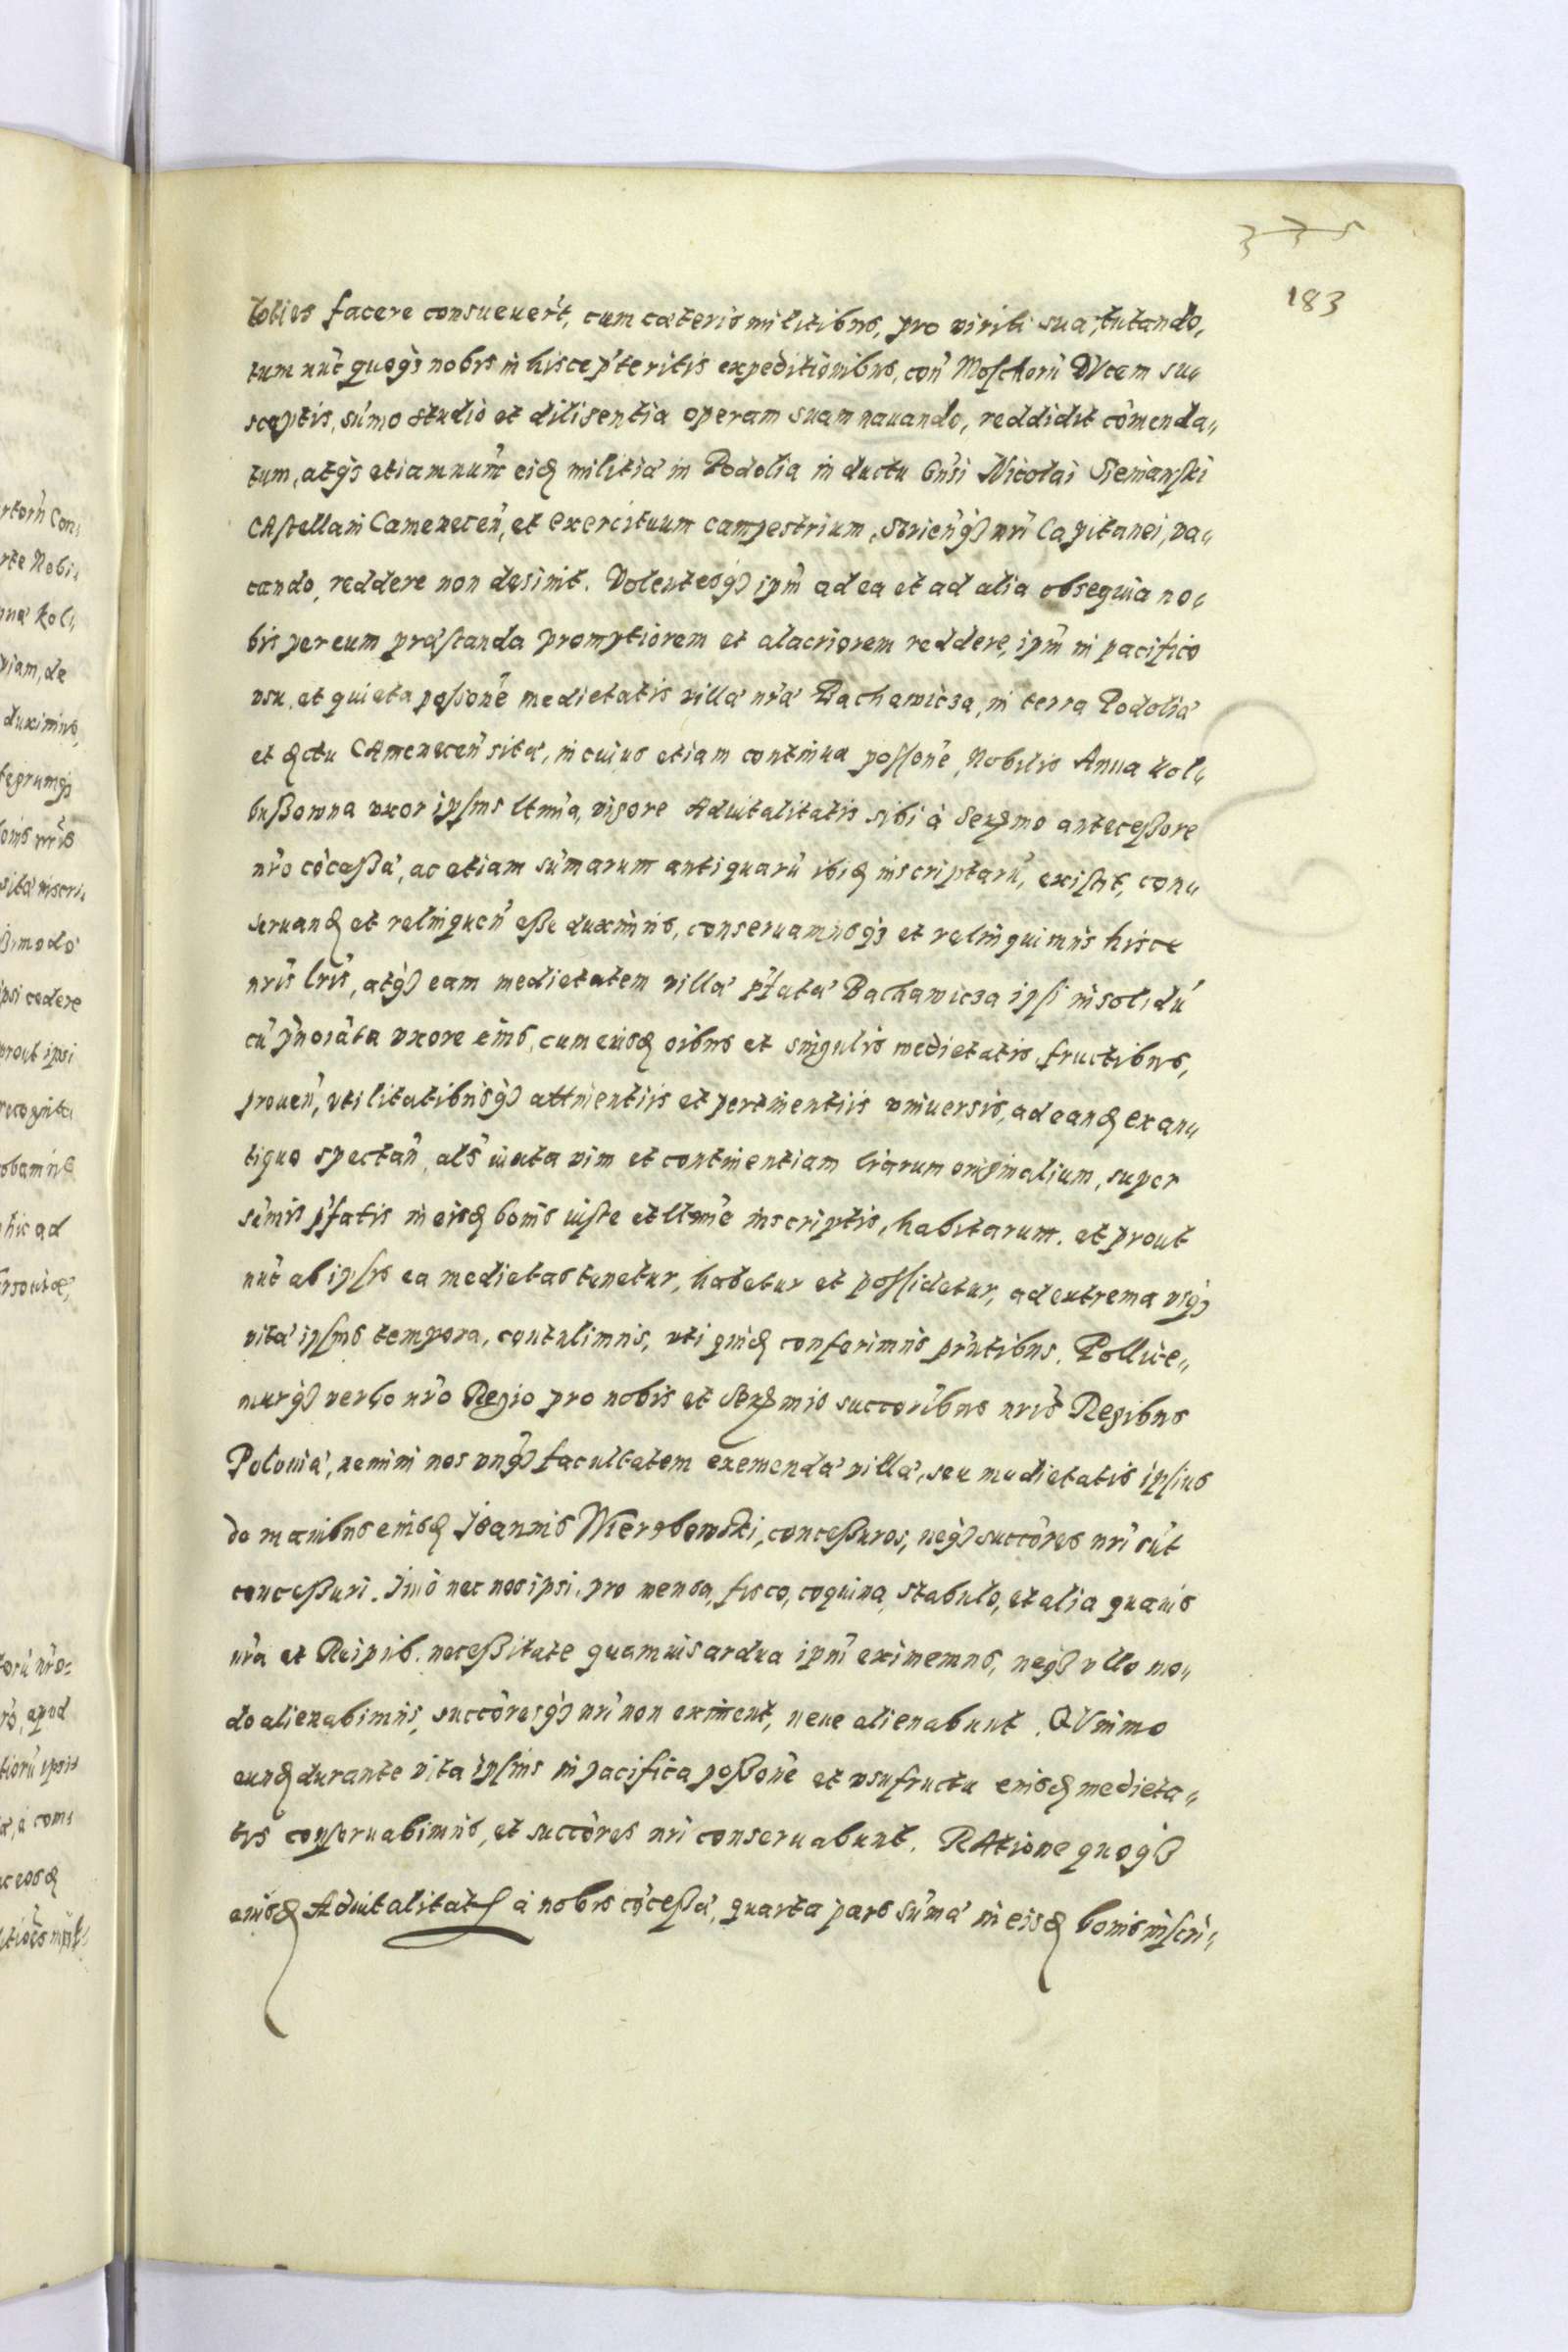 335
183
toties facere consueuer̃t, cum cæteris militibus, pro virili sua, tutando,
tum nũc quoq̃ nobis in hisce p̃teritis expeditionibus, coñ Moschorũ Ducem su„
sceptis, sũmo studio et diligentia operam suam nauando, reddidit com̃enda„
tum, atq̃ etiamnum̃ eid militiæ in Podolia in ductu Gn̄si Nicolai Sieniawski
Castellani Camenecen̄, et exercituum campestrium, Strien̄q̃ nr̃i Capitanei, va„
cando, reddere non desinit. Volentesq̃ ipm̃ ad ea et ad alia obsequia no„
bis per eum præstanda promptiorem et alacriorem reddere, ipm̃ in pacifico
vsu, et quieta possionē medietatis villæ nr̃æ Bachawicza, in terra Podoliæ
et dctu Camenecen̄ sitæ, in cuius etiam continua possonē, Nobilis Anna Kol„
bussowna vxor ipsius ltm̃a, vigore Aduitalitatis sibi à Serᷤmo antecessore
nr̃o cõcessæ, ac etiam sum̃arum antiquarũ ibid inscriptarũ, existit, con„
seruand et relinquen̄ esse duximus, conseruamusq̃ et relinquimus hisce
nris̃ lris̃, atq̃ eam medietatem villæ p̃fatæ Bachawicza ipsi insolidũ
cũ p̃norãta vxore eius, cum eiusd oĩbus et singulis medietatis fructibus,
prouen̄, vtilitatibusq̃ attinentiis et pertinentiis vniuersis, ad eand ex an„
tiquo spectan̄, als̃ iuxta vim et continentiam lrãrum originalium, super
sum̃is p̃fatis in eisd bonis iuste et ltm̃e inscriptis, habitarum. et prout
nũc ab ipsis ea medietas tenetur, habetur et possidetur, ad extrema vsq̃
vitæ ipsius tempora, contulimus, vti quid conferimus pr̃ntibus. Pollice„
murq̃ verbo nr̃o Regio pro nobis et Serᷤmis succoribus nris̃ Regibus
Poloniæ, nemini nos vnq̃ facultatem exemendæ villæ, seu medietatis ipsius
de manibus eiusd Joannis Wierzbowski, concessuros, neq̃ succõres nri̇̃ sũt
concessuri. Imo nec nos ipsi, pro mensa, fisco, coquina, stabulo, et alia quauis
nr̃a et Reipub. necessitate quamuis ardua ipm̃ eximemus, neq̃ vllo mo„
do alienabimus, succõresq̃ nri̇̃ non eximent, neue alienabunt. Quinimo
eund durante vita ipsius in pacifica possonē et vsufructu eiusd medieta„
tis conseruabimus, et succõres nri̇̃ conseruabunt. Ratione quoq̃
eiusd Aduitalitatis à nobis cõcessæ, quarta pars sum̃æ in eisd bonis inscri„